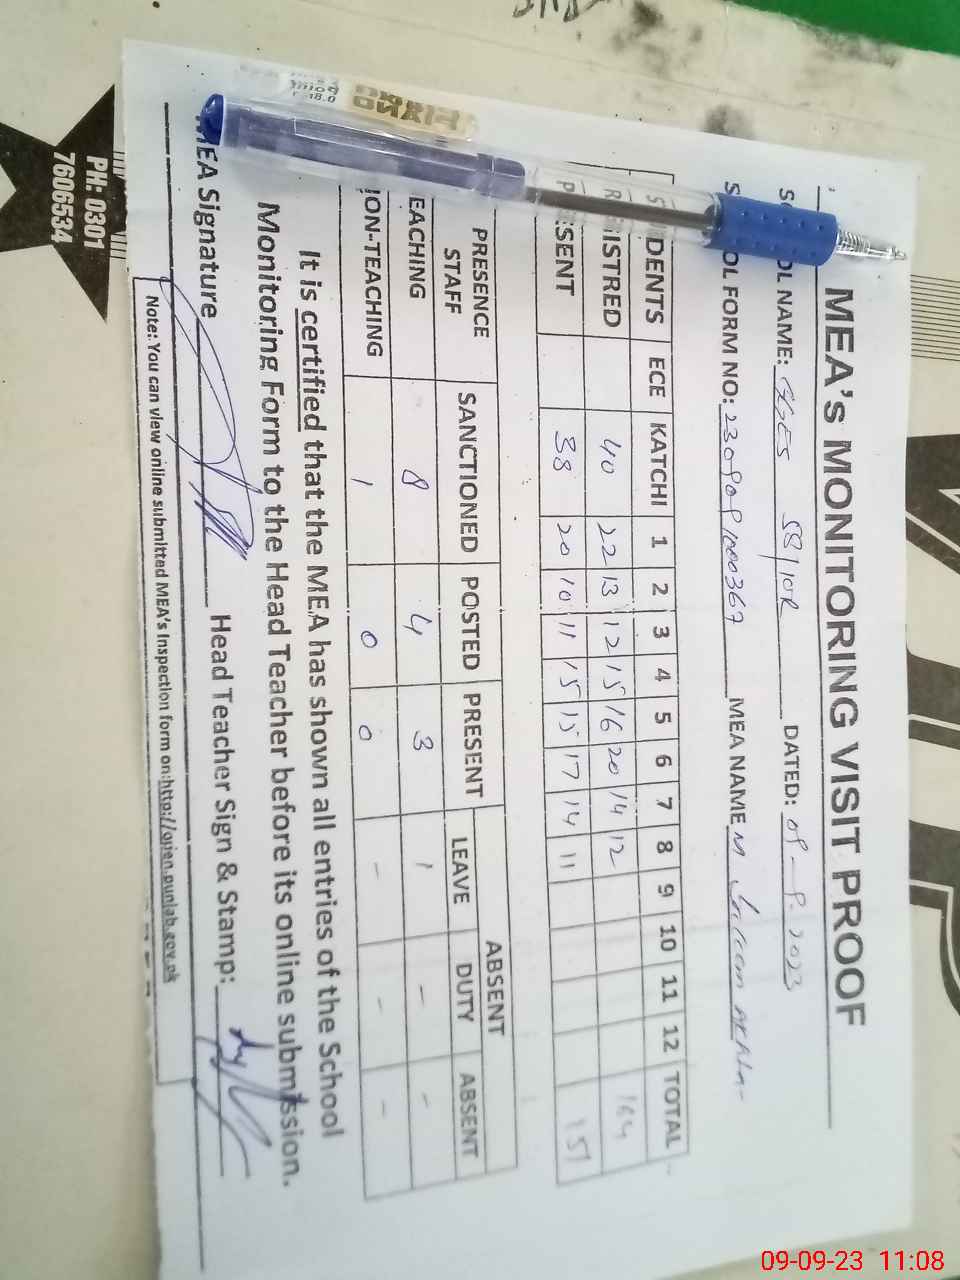 MEA'S MONITORING VISIT PROOF
OL NAME: GGES 58/10R DATED: 09-9-2023
OL FORM NO: MEA NAME M
DENTS ECE KATCHI 1 2 3 4 5 6 7 8 9 10 11 12 TOTAL
ISTRED 40 22 13 12 15 16 20 14 12 164
ESENT 38 20 10 11 15 15 17 14 11 151
PRESENCE STAFF SANCTIONED POSTED PRESENT ABSENT
LEAVE DUTY ABSENT
EACHING 8 4 3 1 - -
ION-TEACHING 1 0 0 - - -
It is certified that the MEA has shown all entries of the School
Monitoring Form to the Head Teacher before its online submission.
MEA Signature Head Teacher Sign & Stamp:
Note: You can view online submitted MEA's Inspection form on:http://open.punjab.gov.pk
PH: 0301
7606534
09-09-23 11:08